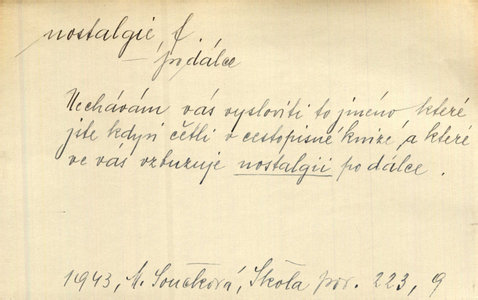 nostalgie, f.
— po dálce
Nechávám vás vysloviti to jméno, které
jste kdysi četli v cestopisné knize, a které
ve vás vzbuzuje nostalgii po dálce.
1943, M. Součková, Škola pov. 223, 9